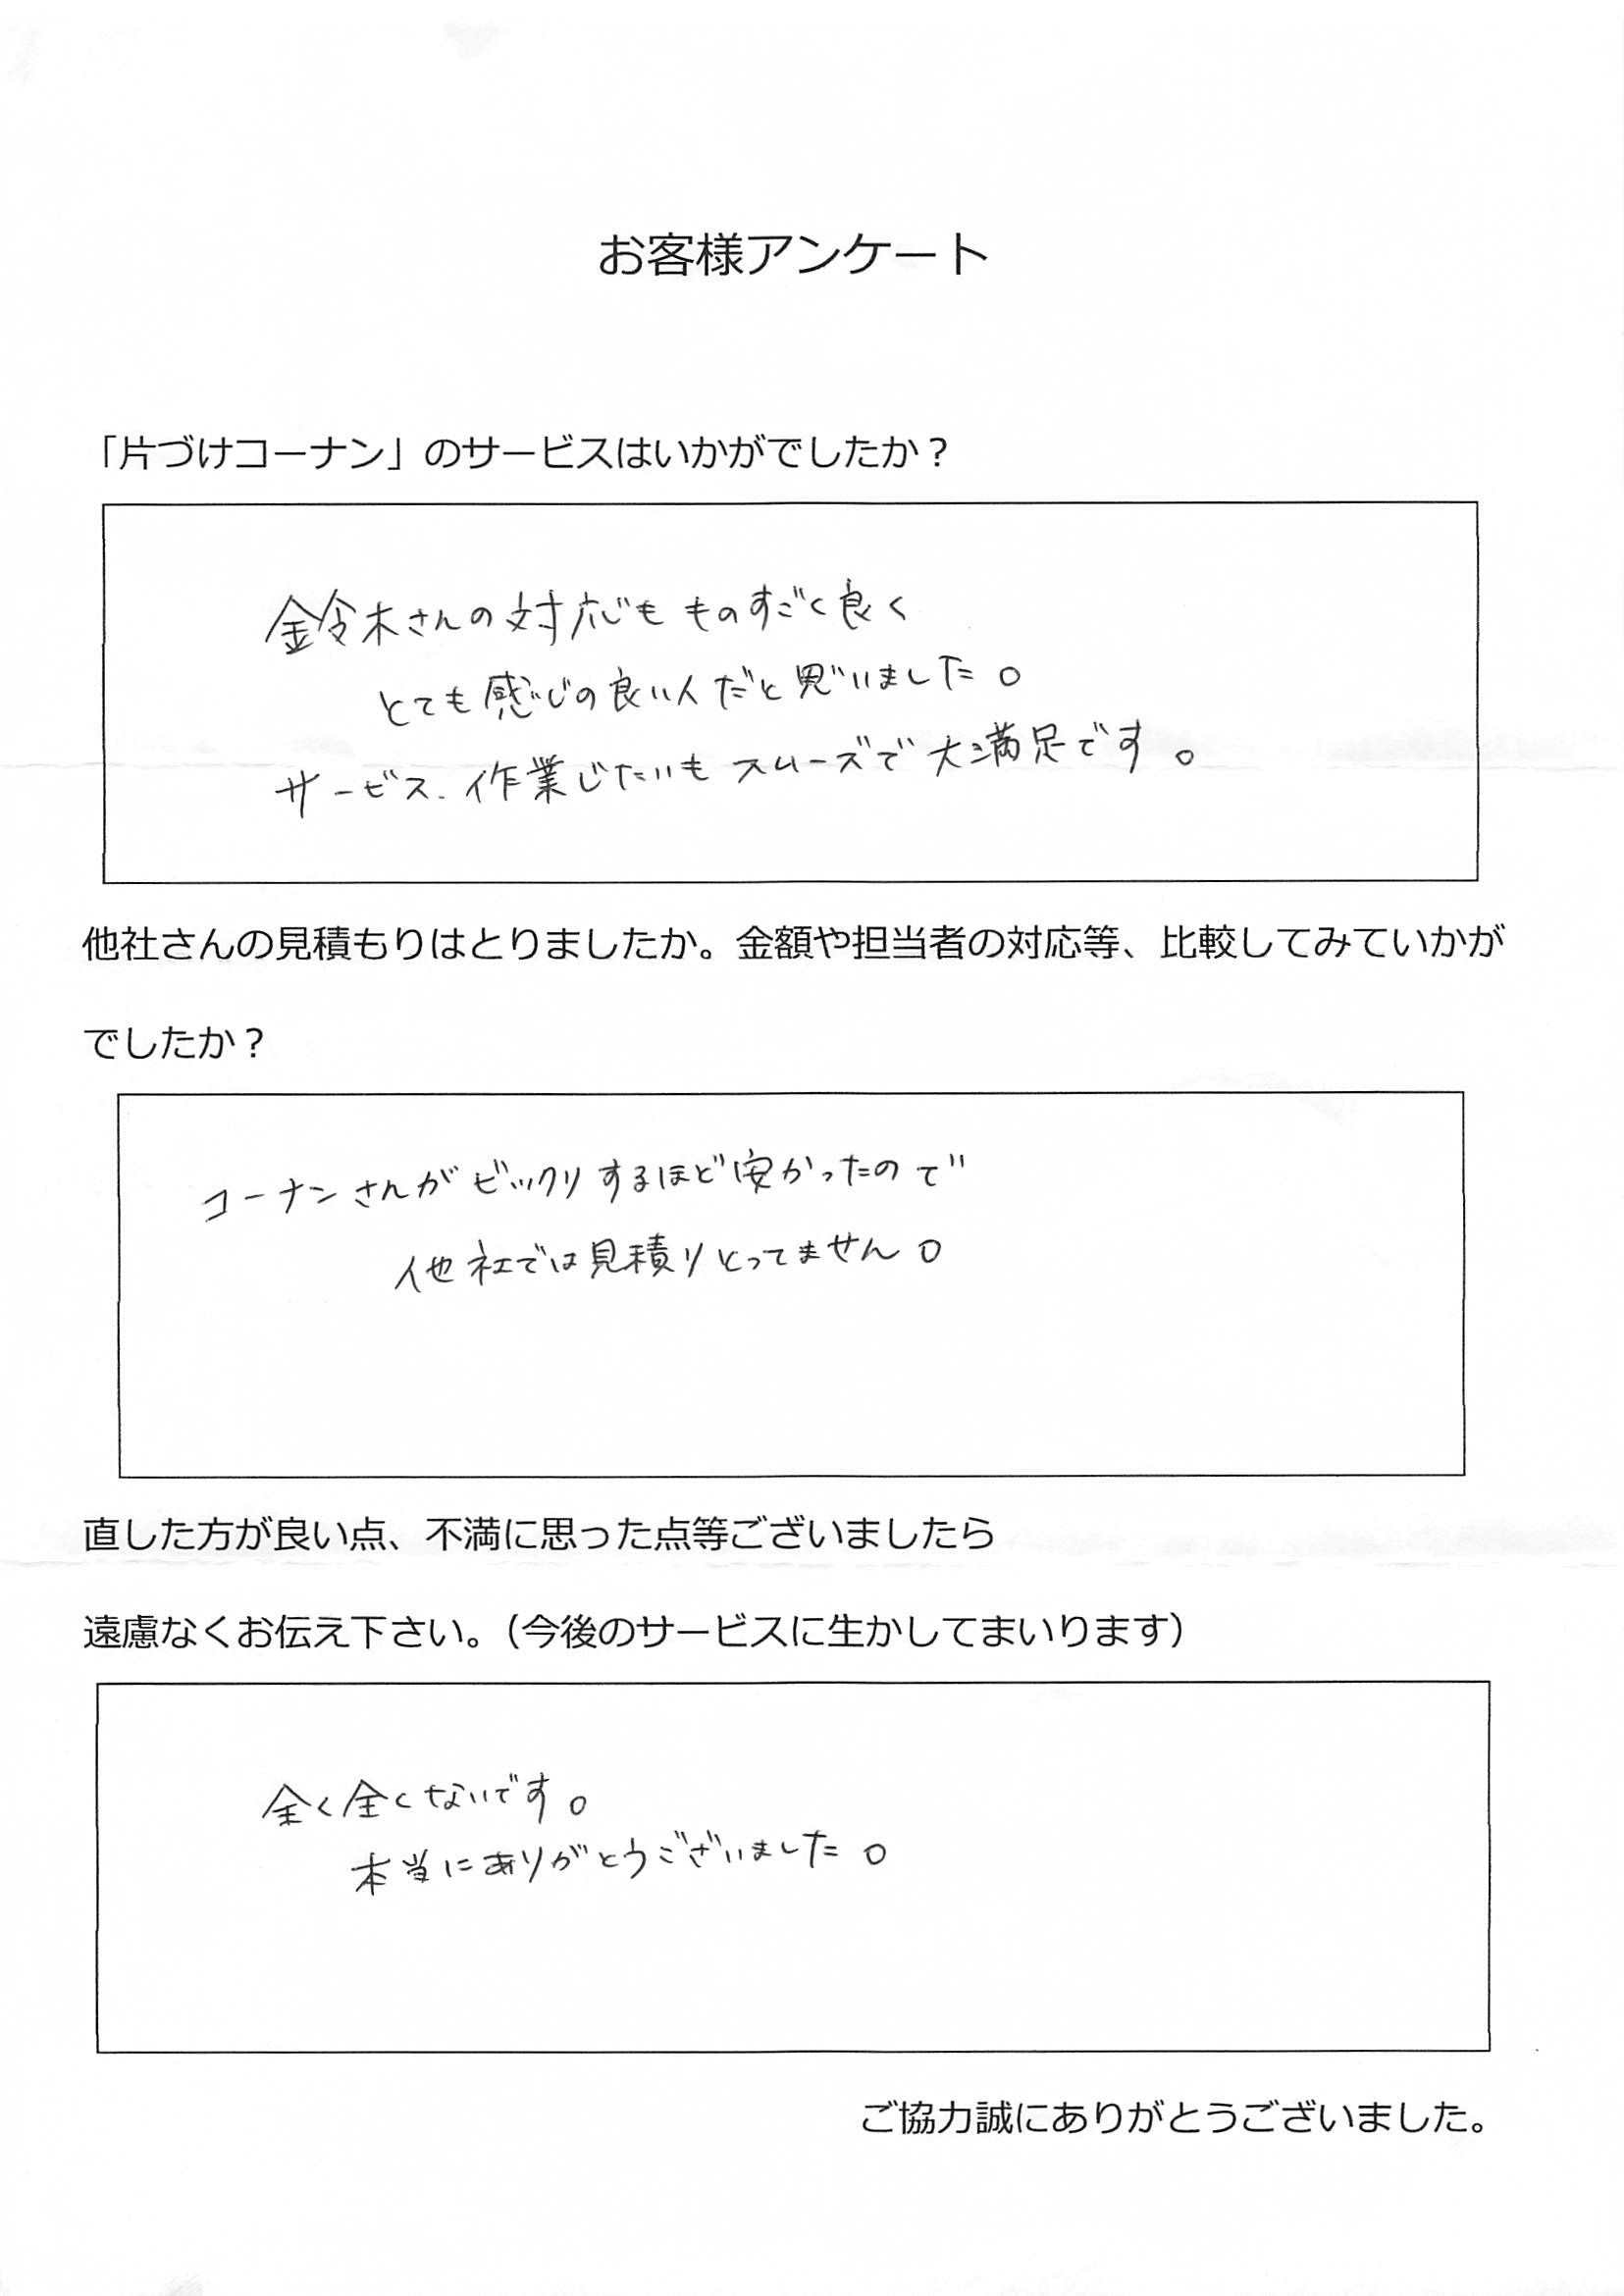 お客様アンケート
「片づけコーナン」のサービスはいかがでしたか？
鈴木さんの対応もものすごく良く
とても感じの良い人だと思いました。
サービス、作業じたいもスムーズで大満足です。
他社さんの見積もりはとりましたか。金額や担当者の対応等、比較してみていかが
でしたか？
コーナンさんがビックリするほど安かったので
他社では見積りとってません。
直した方が良い点、不満に思った点等ございましたら
遠慮なくお伝え下さい。（今後のサービスに生かしてまいります）
全く全くないです。
本当にありがとうございました。
ご協力誠にありがとうございました。